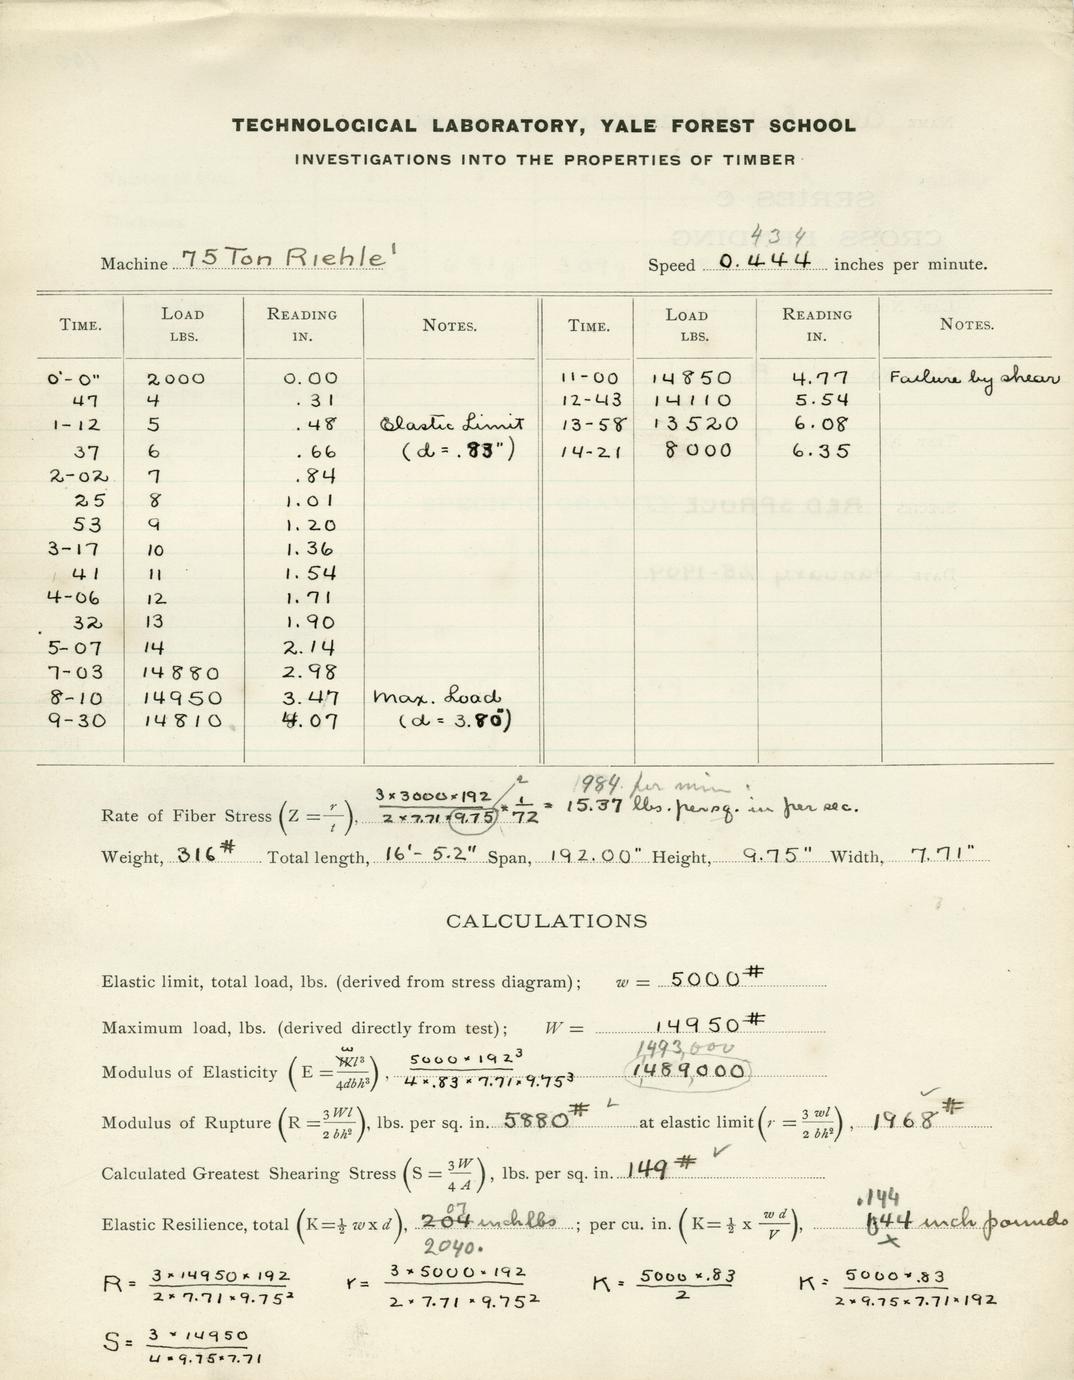 TECHNOLOGICAL LABORATORY, YALE FOREST SCHOOL
INVESTIGATIONS INTO THE PROPERTIES OF TIMBER
434
Machine 75 Ton Riehle' Speed 0.444 inches per minute.
TIME. LOAD LBS. READING IN. NOTES. TIME. LOAD LBS. READING IN. NOTES.
0'-0" 2000 0.00 11-00 14850 4.77 Failure by shear
47 4 .31 12-43 14110 5.54
1-12 5 .48 Elastic Limit 13-58 13520 6.08
37 6 .66 (d = .83") 14-21 8000 6.35
2-02 7 .84
25 8 1.01
53 9 1.20
3-17 10 1.36
41 11 1.54
4-06 12 1.71
32 13 1.90
5-07 14 2.14
7-03 14880 2.98
8-10 14950 3.47 Max. Load
9-30 14810 4.07 (d = 3.80")
1984. per min.
Rate of Fiber Stress (Z = r/t), 3×3000×192 / 2×7.71×9.75² × 1/72 = 15.37 lbs. per sq. in per sec.
Weight, 316# Total length, 16'-5.2" Span, 192.00" Height, 9.75" Width, 7.71"
CALCULATIONS
Elastic limit, total load, lbs. (derived from stress diagram); w = 5000#
Maximum load, lbs. (derived directly from test); W = 14950#
1493,000
Modulus of Elasticity (E = wl³/4dbh³), 5000×192³ / 4×.83×7.71×9.75³ 1489,000
Modulus of Rupture (R = 3Wl/2bh²), lbs. per sq. in. 5880# at elastic limit (r = 3wl/2bh²), 1968#
Calculated Greatest Shearing Stress (S = 3W/4A), lbs. per sq. in. 149#
07 .144
Elastic Resilience, total (K=½ w x d), 204 inch lbs ; per cu. in. (K=½ x wd/V), 144 inch pounds
2040. x
R = 3×14950×192 / 2×7.71×9.75² r = 3×5000×192 / 2×7.71×9.75² K = 5000×.83 / 2 K = 5000×.83 / 2×9.75×7.71×192
S = 3×14950 / 4×9.75×7.71